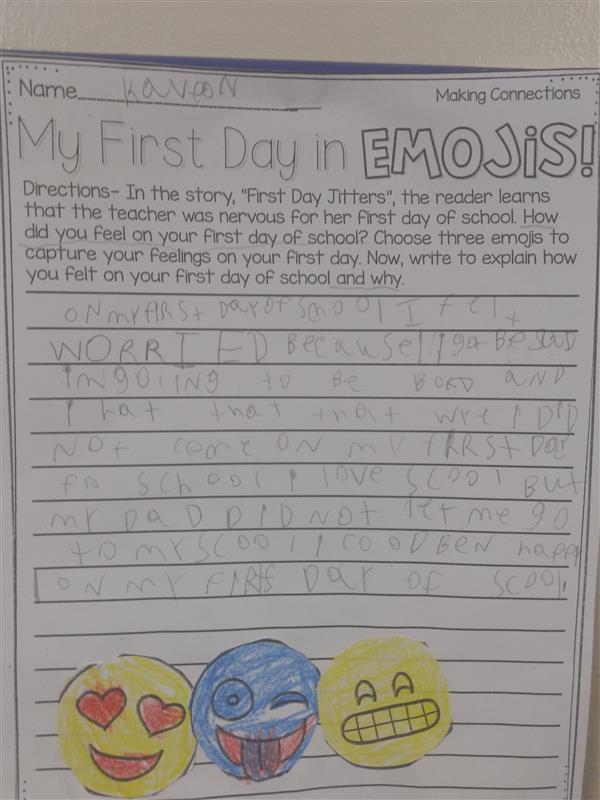 Name KaveoN
Making Connections
My First Day in EMOJiS!
Directions- In the story, "First Day Jitters", the reader learns
that the teacher was nervous for her first day of school. How
did you feel on your first day of school? Choose three emojis to
capture your feelings on your first day. Now, write to explain how
you felt on your first day of school and why.
ON my day of School I felt
WORRIED Because I
iNgoiiNg to Be BorD AND
I hat that that I DiD
Not come ON my DaY
School I love Scool But
my DaD DiD Not let me go
to my Scool I cooDBeN happy
ON my FiRSt Day of Scool